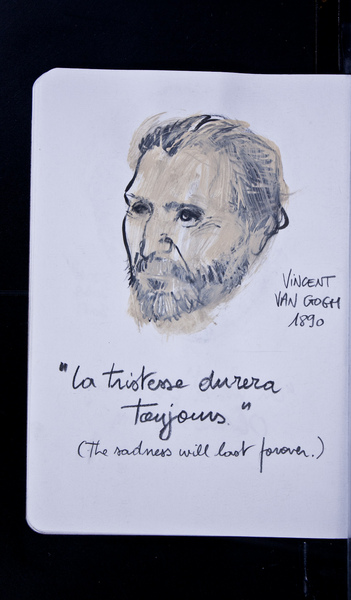 VINCENT
VAN GOGH
1890
"La tristesse durera
toujours."
(The sadness will last forever.)